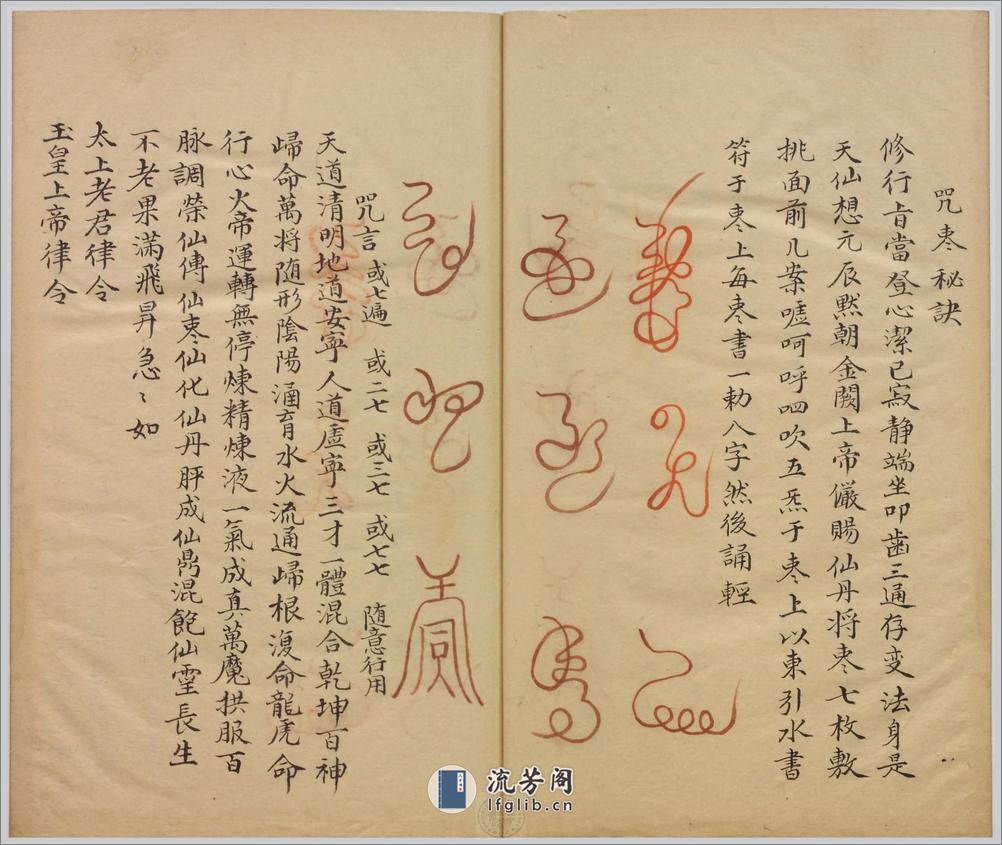 咒枣秘訣
修行旨當登心潔已寂静端坐叩齒三通存变法身是
天仙想元辰黙朝金闕上帝儼賜仙丹将枣七枚敷
挑面前几案嘘呵呼呬吹五炁于枣上以東引水書
符于枣上每枣書一勅八字然後誦輕
咒言 或七遍 或二七 或三七 或七七 随意行用
天道清明地道安寕人道虗寕三才一體混合乾坤百神
歸命萬将随形陰陽涵育水火流通歸根復命龍虎命
行心火帝運轉無停煉精煉液一氣成真萬魔拱服百
脉調榮仙傳仙枣仙化仙丹胚成仙鼎混飽仙霊長生
不老果滿飛昇急〻如
太上老君律令
玉皇上帝律令
流芳阁
lfglib.cn